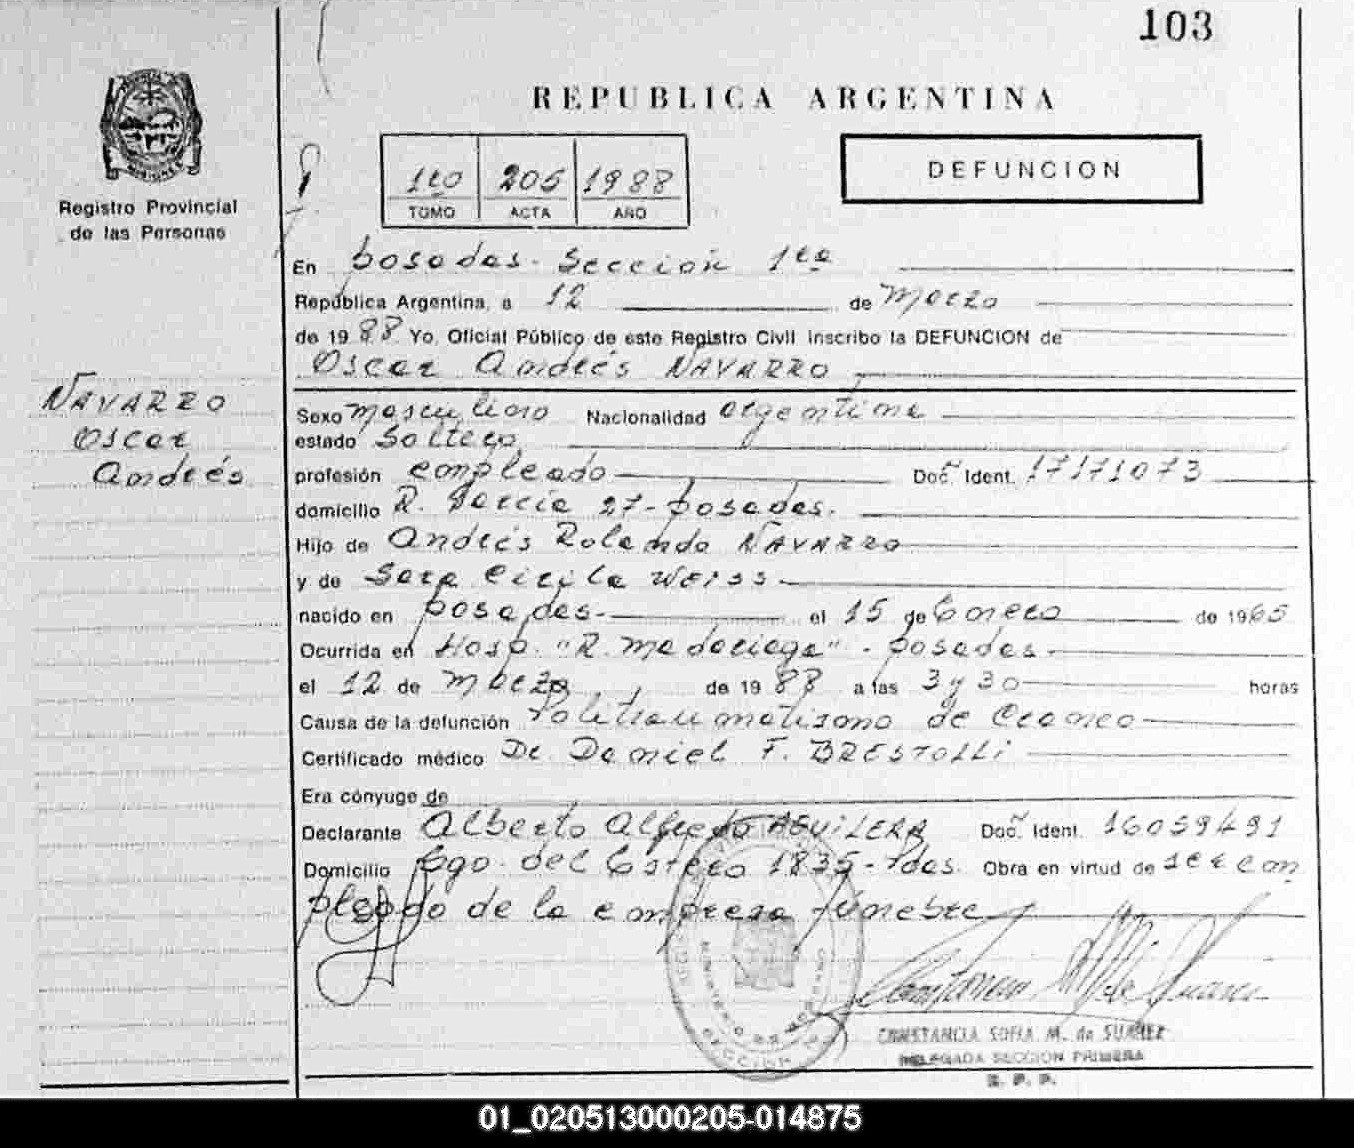 103
REPUBLICA ARGENTINA
1ro 205 1988
TOMO ACTA AÑO
DEFUNCION
Registro Provincial
de las Personas
En Posadas - Sección 1ra
República Argentina, a 12 de Marzo
de 1988 Yo, Oficial Público de este Registro Civil inscribo la DEFUNCION de
Oscar Andrés NAVARRO
NAVARRO
Oscar
Andrés
Sexo masculino Nacionalidad argentina
estado Soltero
profesión empleado Doc. Ident. 17171073
domicilio R. García 27 - Posadas.
Hijo de Andrés Rolando NAVARRO
y de Sara Cirila Weiss
nacido en Posadas - el 15 de Enero de 1965
Ocurrida en Hosp. "R. Madariaga" - Posadas -
el 12 de Marzo de 1988 a las 3 y 30 horas
Causa de la defunción Politraumatismo de Craneo
Certificado médico Dr. Daniel F. BRESTOLLI
Era cónyuge de
Declarante Alberto Alfredo AGUILERA Doc. Ident. 16059491
Domicilio Sgo. del Estero 1835 - Pdas. Obra en virtud de ser em
pleado de la empresa fúnebre
CONSTANCIA SOFIA M. de SUAREZ
DELEGADA SECCION PRIMERA
R. P. P.
01_020513000205-014875